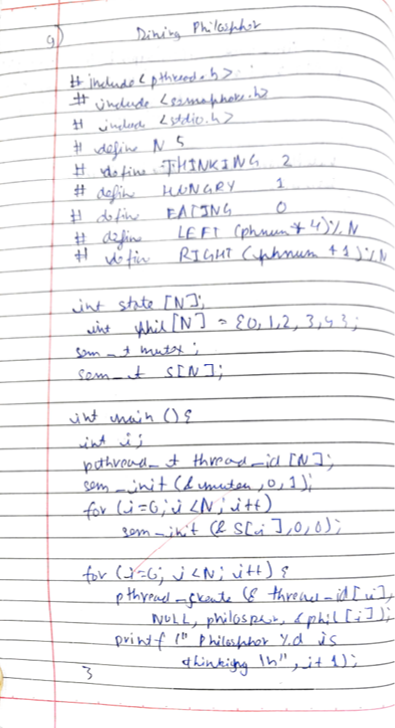 9) Dining Philosphor
# include < pthread.h >
# include < semaphore.h >
# include < stdio.h >
# define N 5
# define THINKING 2
# define HUNGRY 1
# define EATING 0
# define LEFT (phnum + 4) % N
# define RIGHT (phnum + 1) % N
int state [N];
int phil [N] = {0, 1, 2, 3, 4};
sem_t mutex ;
sem_t S[N];
int main () {
int i;
pthread_t thread_id [N];
sem_init (& mutex , 0, 1);
for (i=0; i < N; i++)
sem_init (& S[i], 0, 0);
for (i=0; i < N; i++) {
pthread_create (& thread_id [i],
NULL, philospher, &phil [i]);
printf (" Philosphor %d is
thinking \n", i+1);
}